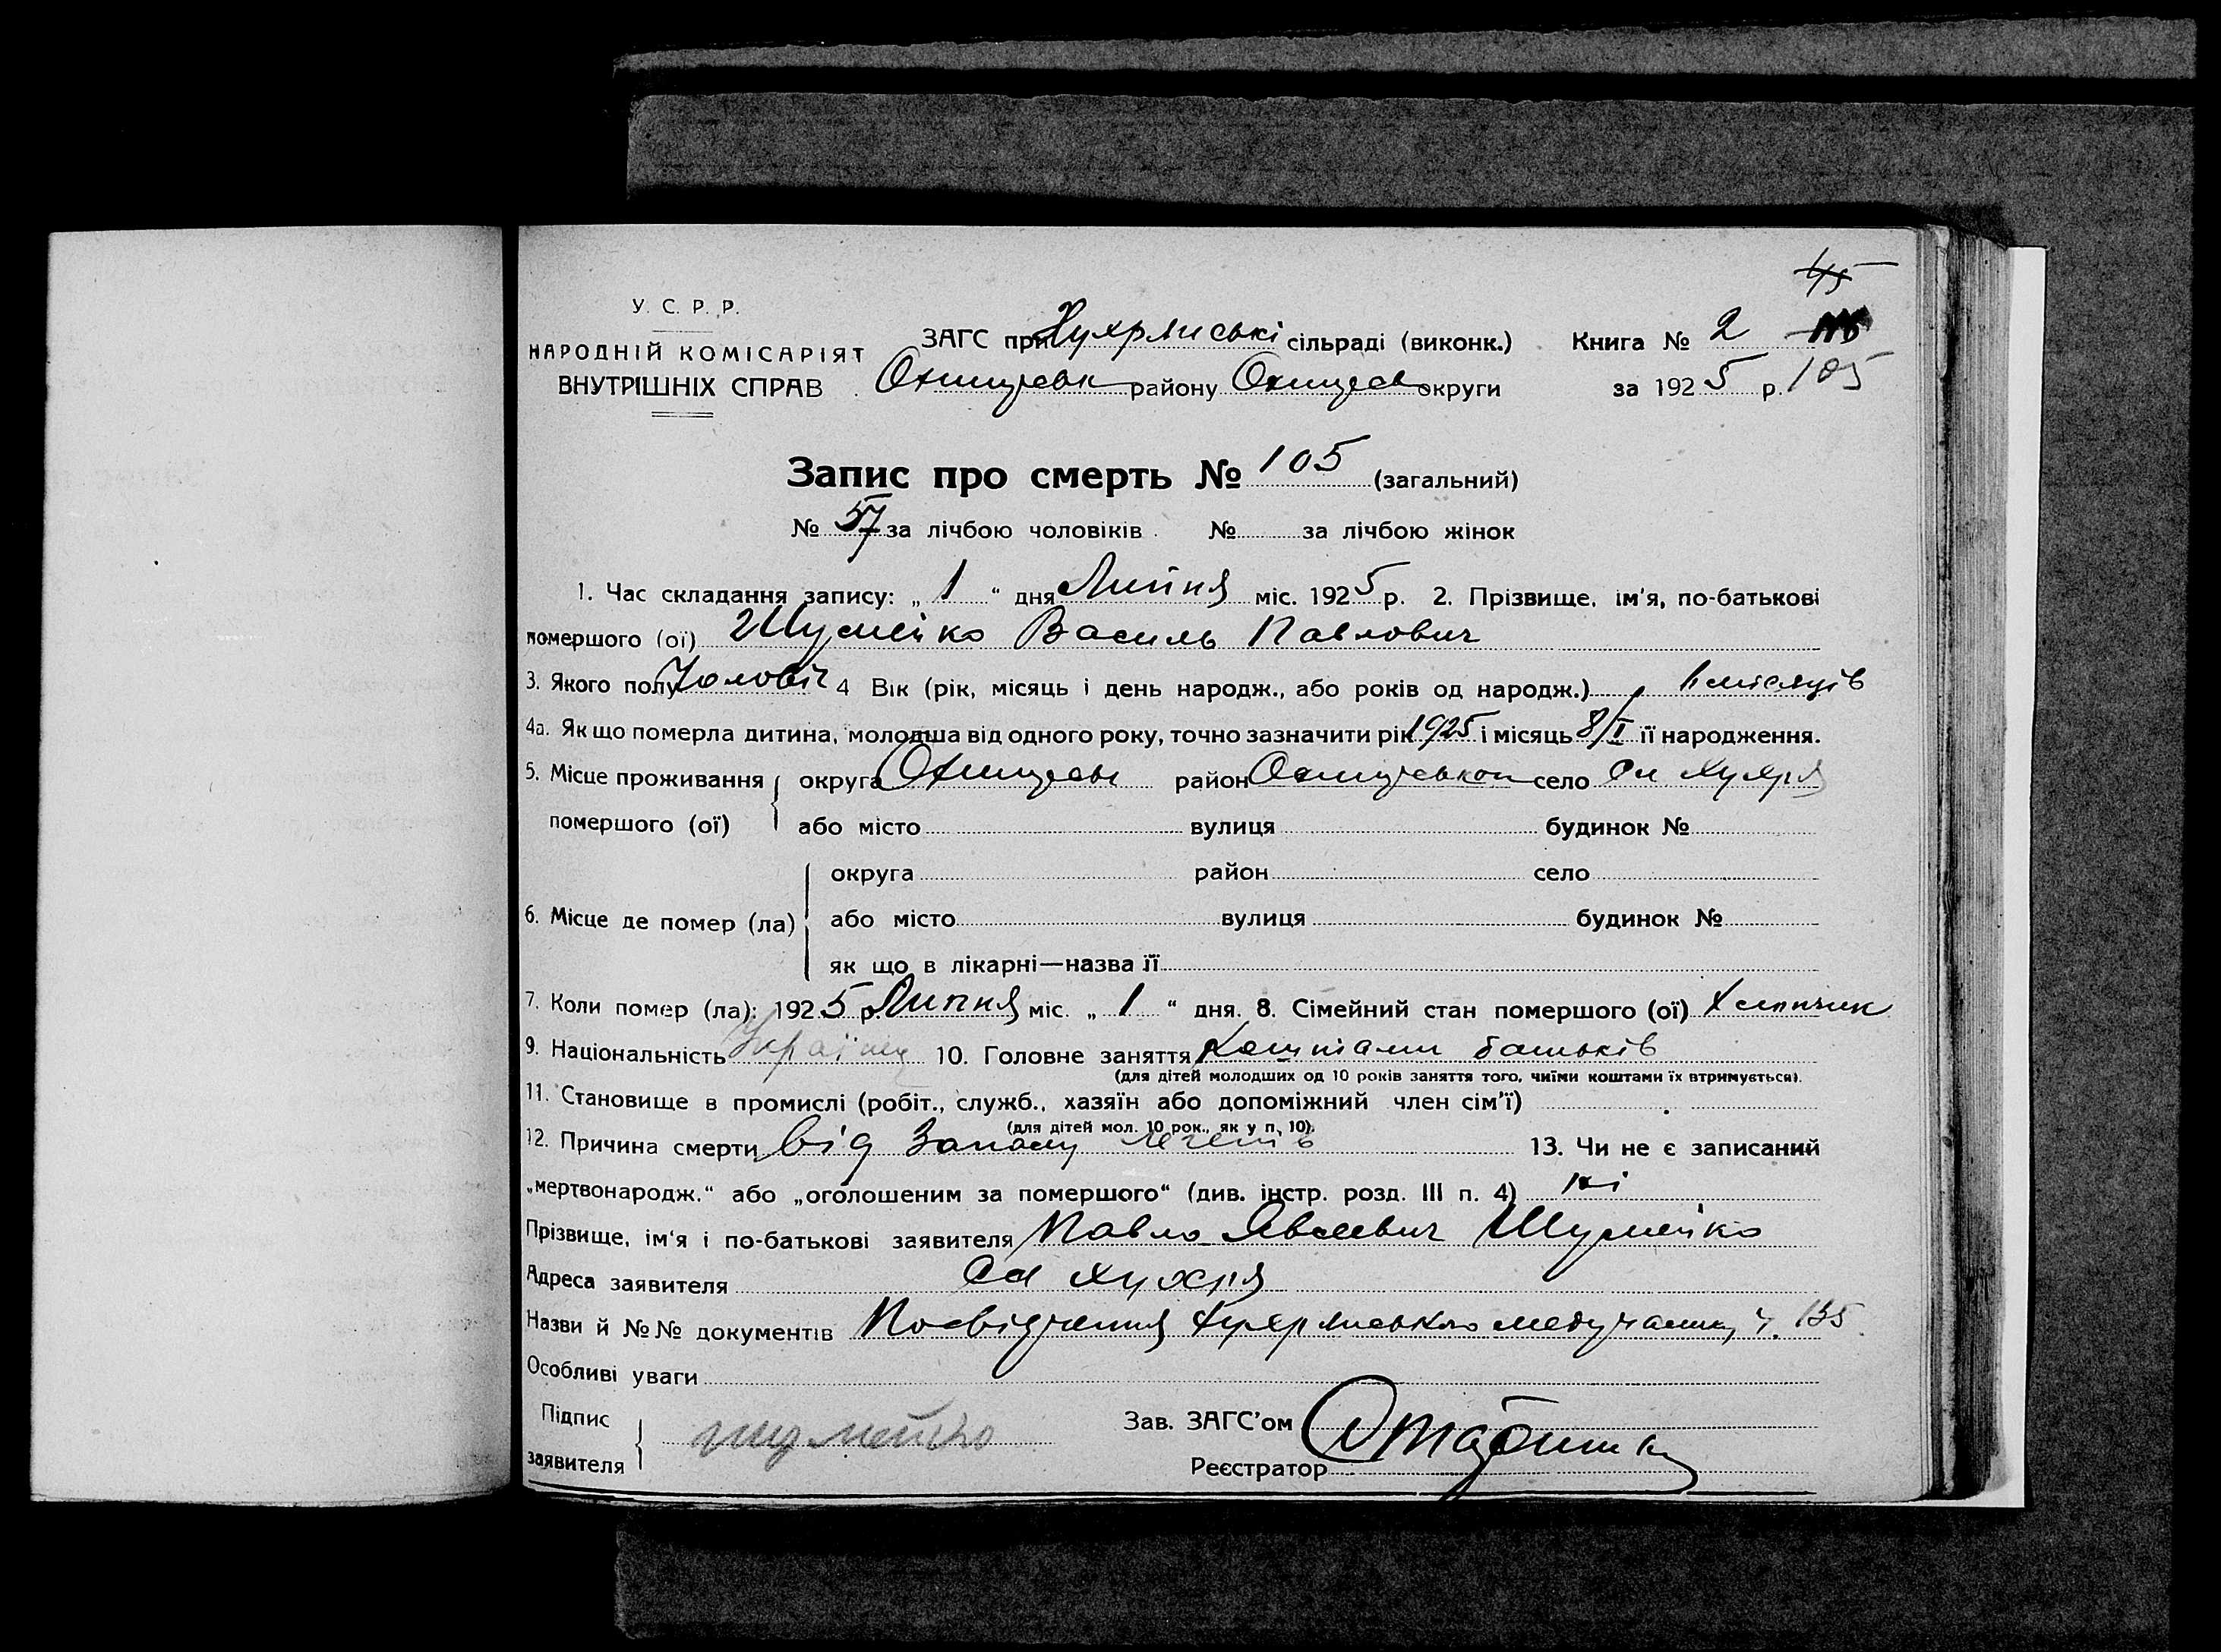 45
У. С. Р. Р.
НАРОДНІЙ КОМІСАРІЯТ
ВНУТРІШНІХ СПРАВ
ЗАГС при Хухрянські сільраді (виконк.) Книга № 2
Охтирськ району Охтирськ округи за 1925 р. 105
Запис про смерть № 105 (загальний)
№ 57 за лічбою чоловіків. № за лічбою жінок
1. Час складання запису: „ 1 “ дня Липня міс. 1925 р. 2. Прізвище, ім'я, по-батькові
помершого (ої) Шумейко Василь Павлович
3. Якого полу Чоловіч 4 Вік (рік, місяць і день народж., або років од народж.) місяців
4а. Як що померла дитина, молодша від одного року, точно зазначити рік 1925 і місяць 8/I її народження.
5. Місце проживання округа район село Сл Хухря
помершого (ої) або місто вулиця будинок №
округа район село
6. Місце де помер (ла) або місто вулиця будинок №
як що в лікарні—назва її
7. Коли помер (ла): 1925 р. Липня міс. „ 1 “ дня. 8. Сімейний стан помершого (ої) Хлопчик
9. Національність Українец 10. Головне заняття Коштами батьків
(для дітей молодших од 10 років заняття того, чиїми коштами їх втримується).
11. Становище в промислі (робіт., служб., хазяїн або допоміжний член сім'ї)
(для дітей мол. 10 рок., як у п. 10).
12. Причина смерти від Запалу легенів 13. Чи не є записаний
„мертвонародж.“ або „оголошеним за помершого“ (див. інстр. розд. III п. 4) ні
Прізвище, ім'я і по-батькові заявителя Павло Шумейко
Адреса заявителя Сл Хухря
Назви й №№ документів Посвідчення Хухрянського медучастку ч. 135
Особливі уваги
Підпис
заявителя Шумейко
Зав. ЗАГС'ом
Реєстратор